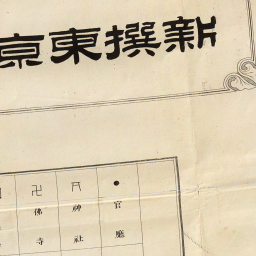 新撰東京
● 官廳
⛩ 神社
卍 佛寺